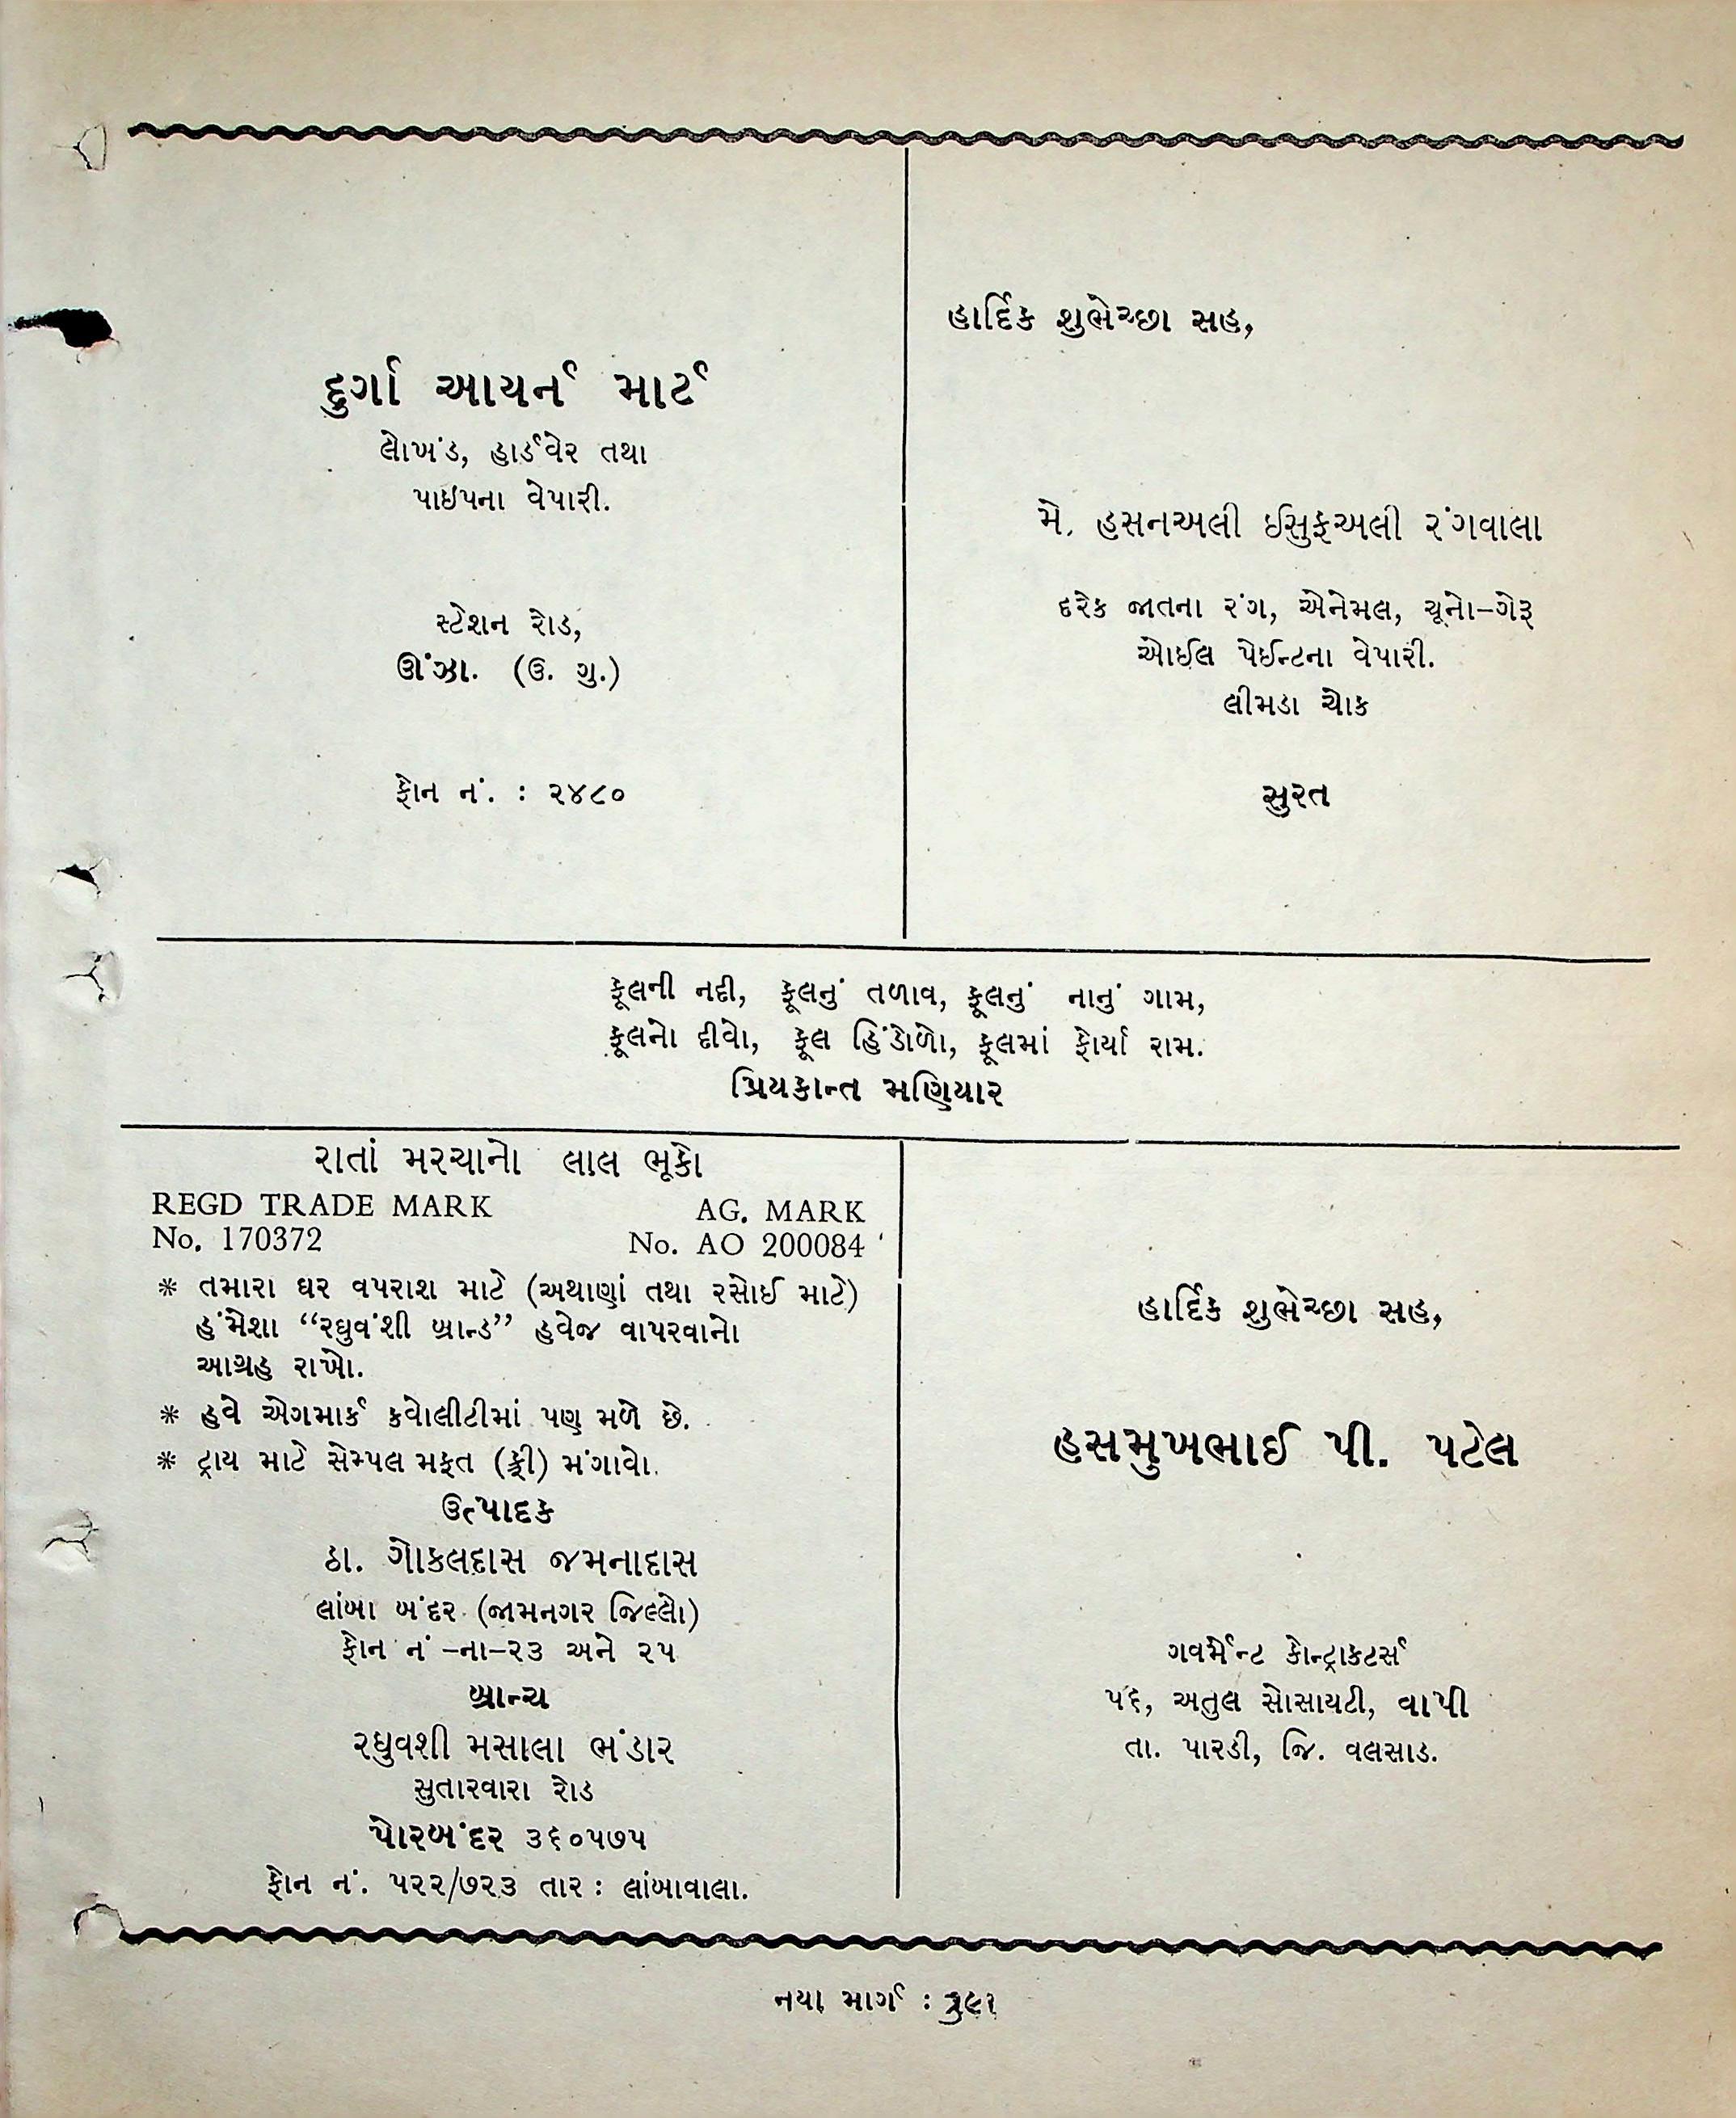 દુર્ગા આયર્ન માર્ટ
લોખંડ, હાર્ડવેર તથા
પાઇપના વેપારી.
સ્ટેશન રોડ,
ઊંઝા. (ઉ. ગુ.)
ફોન નં. : ૨૪૮૦
હાર્દિક શુભેચ્છા સહ,
મે. હસનઅલી ઈસુફઅલી રંગવાલા
દરેક જાતના રંગ, એનેમલ, ચૂનો–ગેરૂ
ઓઈલ પેઈન્ટના વેપારી.
લીમડા ચોક
સુરત
ફૂલની નદી, ફૂલનું તળાવ, ફૂલનું નાનું ગામ,
ફૂલનો દીવો, ફૂલ હિંડોળો, ફૂલમાં ફોર્યા રામ.
પ્રિયકાન્ત મણિયાર
રાતાં મરચાનો લાલ ભૂકો
REGD TRADE MARK AG. MARK
No. 170372 No. AO 200084
* તમારા ઘર વપરાશ માટે (અથાણાં તથા રસોઈ માટે)
હંમેશા “રઘુવંશી બ્રાન્ડ” હવેજ વાપરવાનો
આગ્રહ રાખો.
* હવે એગમાર્ક કવોલીટીમાં પણ મળે છે.
* ટ્રાય માટે સેમ્પલ મફત (ફ્રી) મંગાવો.
ઉત્પાદક
ઠા. ગોકલદાસ જમનાદાસ
લાંબા બંદર (જામનગર જિલ્લો)
ફોન નં –ના–૨૩ અને ૨૫
બ્રાન્ચ
રઘુવશી મસાલા ભંડાર
સુતારવારા રોડ
પોરબંદર ૩૬૦૫૭૫
ફોન નં. ૫૨૨/૭૨૩ તાર : લાંબાવાલા.
હાર્દિક શુભેચ્છા સહ,
હસમુખભાઈ પી. પટેલ
ગવર્મેન્ટ કોન્ટ્રાકટર્સ
૫૬, અતુલ સોસાયટી, વાપી
તા. પારડી, જિ. વલસાડ.
નયા માર્ગ :